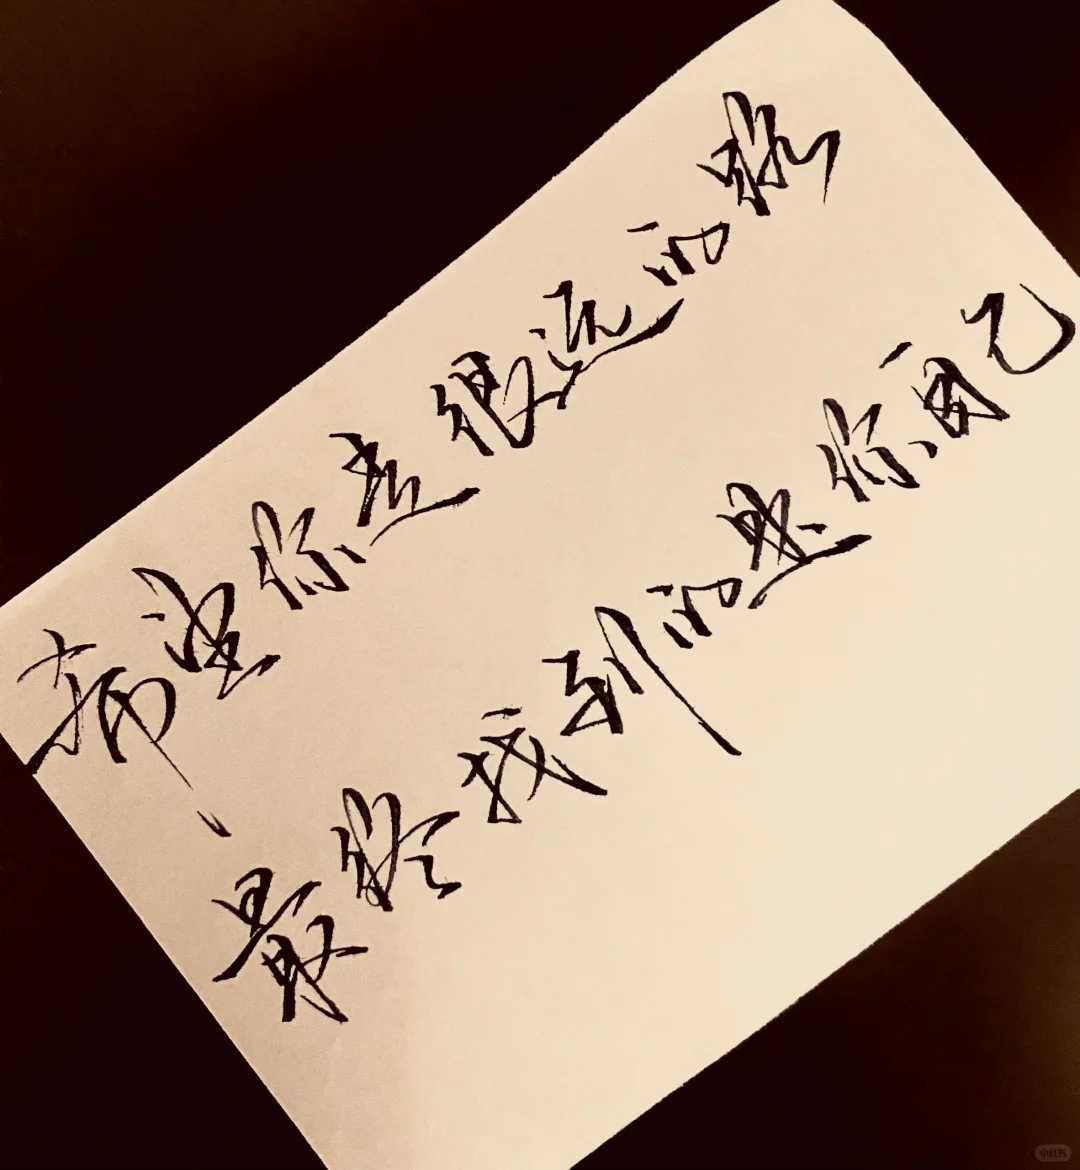 希望你走很远的路
最终找到的是你自己
小红书